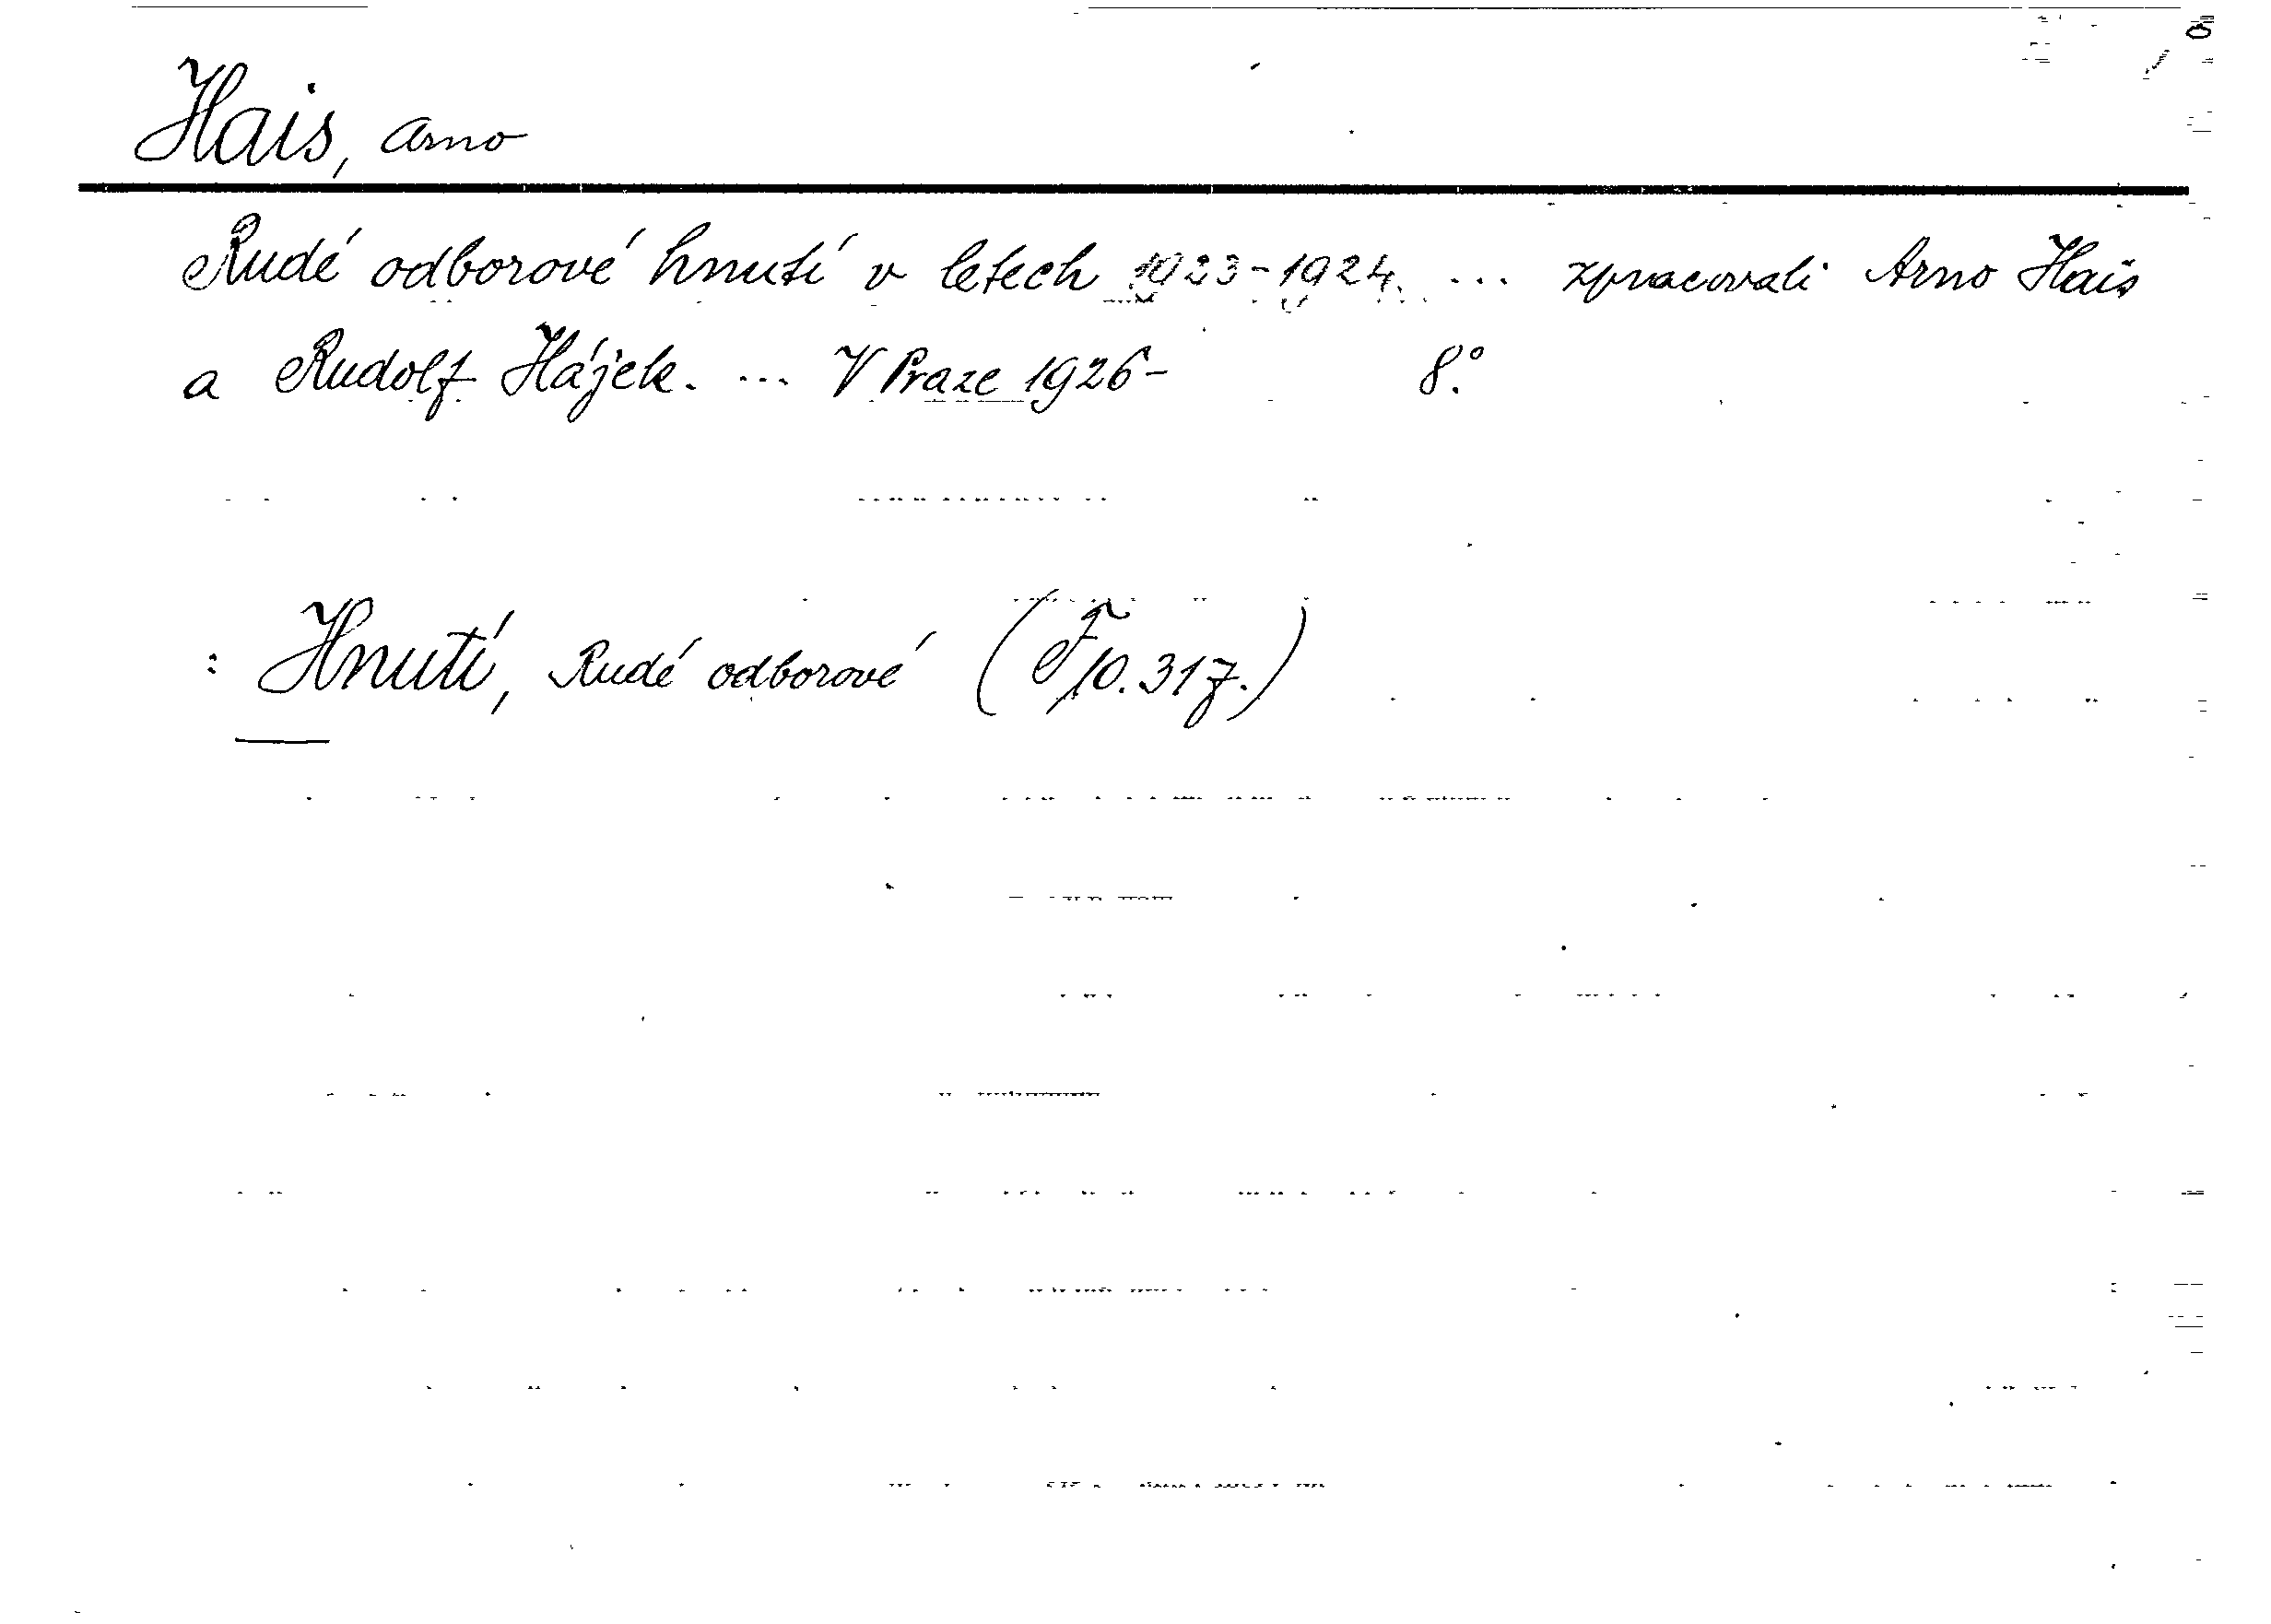 Hais, Arno
Rudé odborové hnutí v letech 1923-1924. ... zpracovali Arno Hais
a Rudolf Hájek. ... V Praze 1926- 8.°
: Hnutí, Rudé odborové (F 10.317.)